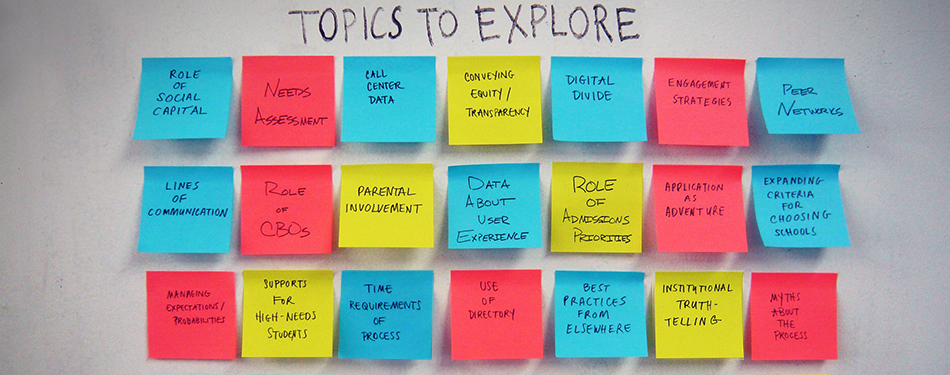 TOPICS TO EXPLORE
ROLE
OF
SOCIAL
CAPITAL
NEEDS
ASSESSMENT
CALL
CENTER
DATA
CONVEYING
EQUITY/
TRANSPARENCY
DIGITAL
DIVIDE
ENGAGEMENT
STRATEGIES
PEER
NETWORKS
LINES
OF
COMMUNICATION
ROLE
OF
CBOs
PARENTAL
INVOLVEMENT
DATA
ABOUT
USER
EXPERIENCE
ROLE
OF
ADMISSIONS
PRIORITIES
APPLICATION
AS
ADVENTURE
EXPANDING
CRITERIA
FOR
CHOOSING
SCHOOLS
MANAGING
EXPECTATIONS/
PROBABILITIES
SUPPORTS
FOR
HIGH-NEEDS
STUDENTS
TIME
REQUIREMENTS
OF
PROCESS
USE
OF
DIRECTORY
BEST
PRACTICES
FROM
ELSEWHERE
INSTITUTIONAL
TRUTH-
TELLING
MYTHS
ABOUT
THE
PROCESS